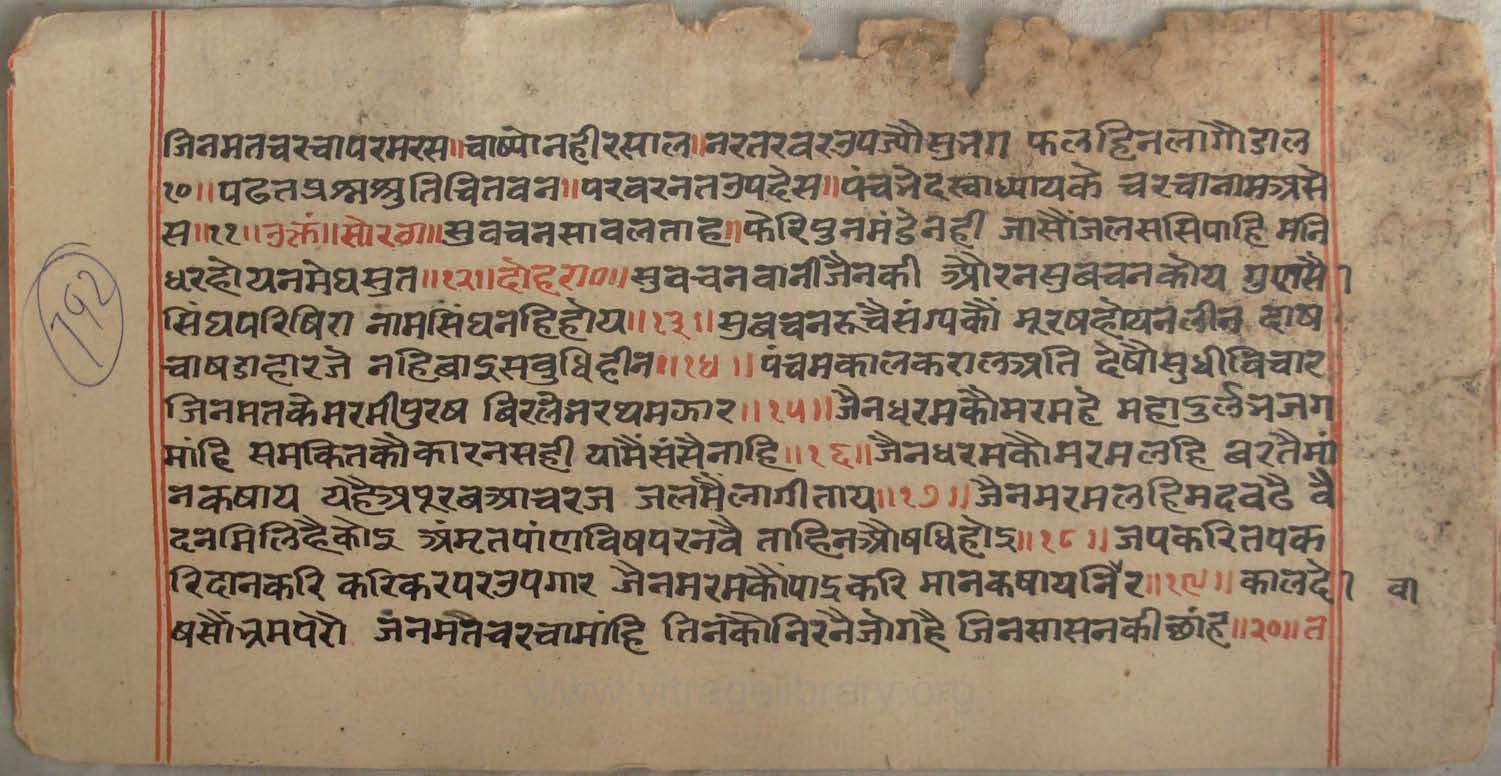 जिनमतचरचापरमरस॥चाष्योनहीरसाल॥नरतरवरउपज्यौसुभग फलहिनलागौडाल
१०॥पढतप्रश्नश्रुतिचितवन॥परवरनतउपदेस॥पंचभेदस्वाध्यायके चरचानामअसे
स॥११॥उक्तं॥सोरठा॥सुवचनसावलताह॥फेरिपुनमंडेनही जासौंजलससिपाहि मनि
धरहोयनमेघसुत॥१२॥दोहरा०॥सुवचनवानीजैनकी औरनसुबचनकोय गुणसै
सिंघपरिषिरा नामसिंघनहिहोय॥१३॥सुबचनरुचैसंग्यकौं मूरषहोयनलीन दाष
चाषडाहारजे नहिबाइसबुधिहीन॥१४॥पंचमकालकरालअति देषौसुधीविचार
जिनमतकेमरमीपुरष बिरलेभरथमझार॥१५॥जैनधरमकौमरमहे महादुर्लभजग
मांहि समकितकौकारनसही यामैंसंसैनाहि॥१६॥जैनधरमकौमरमलहि बरतैमां
नकषाय यहैअपूरबआचरज जलमैलागीताय॥१७॥जैनमरमलहिमदवढै वै
दनमिलिहैकोइ अंमृतपांणविषपरनवै ताहिनऔषधिहोइ॥१८॥जपकरितपक
रिदानकरि करिकरपरउपगार जैनमरमकौंपाइकरि मानकषायनिैर॥१९॥कालदे
वा
षसौंभ्रमपरौ जैनमतैचरचामांहि तिनकौनिरनैजोगहै जिनसासनकीछांह॥२०॥त
192
www.vitragelibrary.org